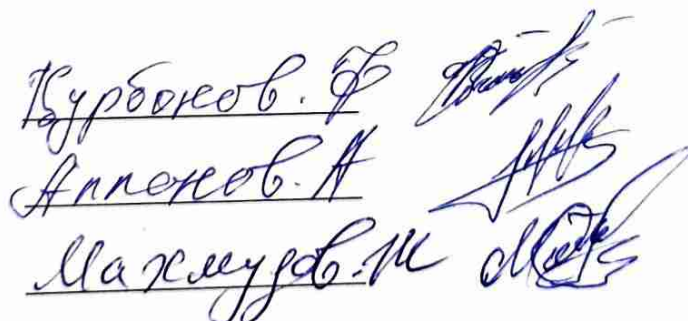 Қурбонов. Ф
Аппонов. А
Махмудов. Ж